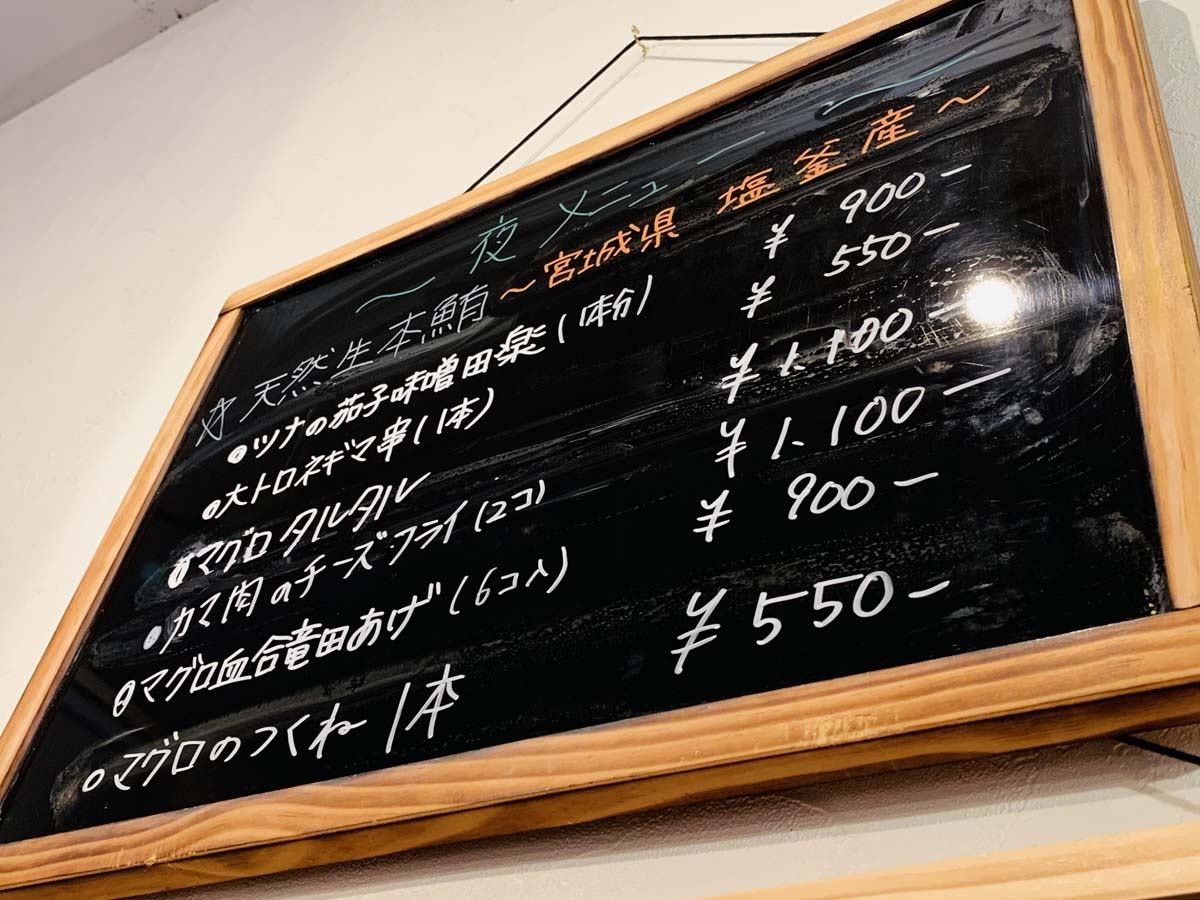 〜 夜メニュー 〜
☆天然生本鮪 〜宮城県 塩釜産〜
●ツナの茄子味噌田楽(1体分) ¥ 900-
●大トロネギマ串(1本) ¥ 550-
●マグロタルタル ¥1.100-
●カマ肉のチーズフライ(2コ) ¥1.100-
●マグロ血合竜田あげ(6コ入) ¥ 900-
○マグロのつくね 1本 ¥550-